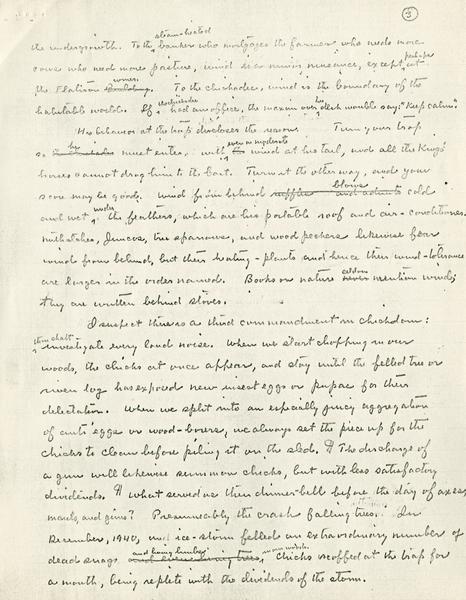 3
the undergrowth. To the steamheated banker who mortgages the farmer who needs more
cows who need more pasture, wind is a minor nuisance, except perhaps at
the Flatiron corner. To the chickadee, wind is the boundary of the
habitable world. If the chickadee had an office, the maxim over his desk would say: "Keep calm."
His behavior at the trap discloses the reason. Turn your trap
so he must enter with even a moderate wind at his tail, and all the King's
horses cannot drag him to the bait. Turn it the other way, and your
score may be good. Wind from behind blows cold
and wet under the feathers, which are his portable roof and air-conditioner.
Nuthatches, juncos, tree sparrows, and woodpeckers likewise fear
wind from behind, but their heating-plants and hence their wind-tolerance
are larger in the order named. Books on nature seldom mention wind;
they are written behind stoves.
I suspect there is a third commandment in chickdom:
thou shalt investigate every loud noise. When we start chopping in our
woods, the chicks at once appear, and stay until the felled tree or
riven log has exposed new insect eggs or pupae for their
delectation. When we split into an especially juicy aggregation
of ants' eggs or wood-borers, we always set the piece up for the
chicks to clean before piling it on the sled. ¶ The discharge of
a gun will likewise summon chicks, but with less satisfactory
dividends. ¶ What served as their dinner-bell before the day of axes,
mauls, and guns? Presumably the crash falling trees. In
December, 1940, an ice-storm felled an extraordinary number of
dead snags and living limbs in our woods. Chicks scoffed at the trap for
a month, being replete with the dividends of the storm.